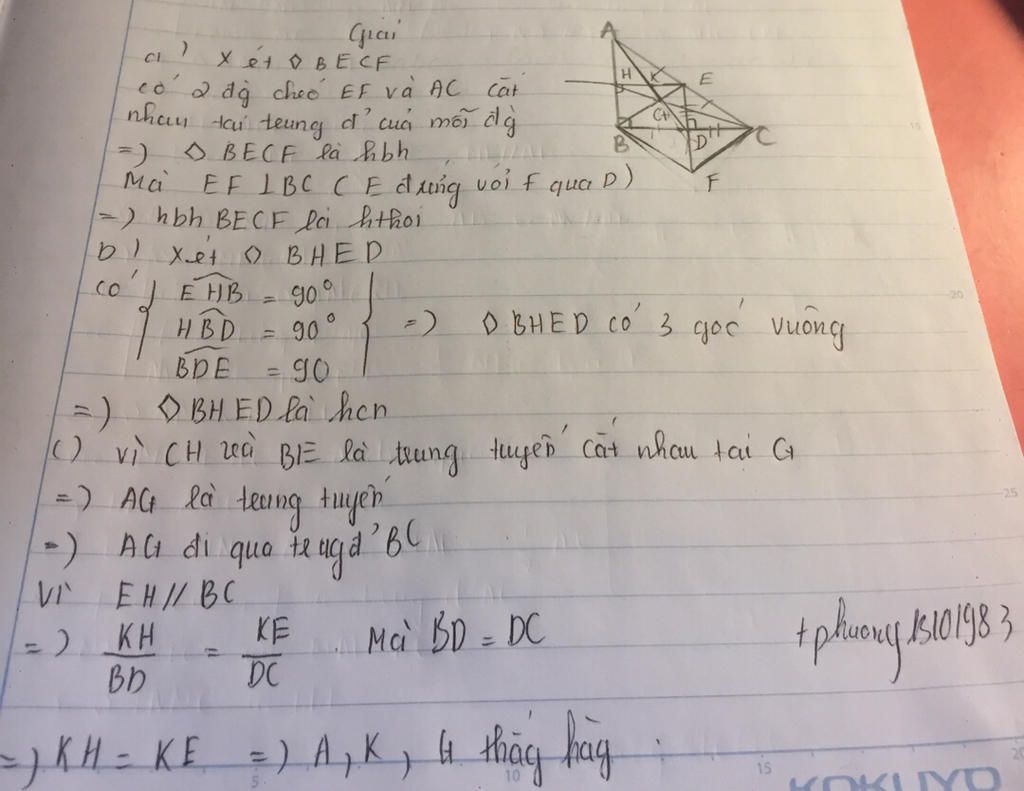 Giải
a) Xét ◊ BECF
có 2 đg chéo EF và AC cắt
nhau tại trung đ' của mỗi đg
=) ◊ BECF là hbh
Mà EF ⊥ BC ( E đ xứng với F qua D )
=) hbh BECF là hthoi
b) Xét ◊ BHED
có { EHB = 90°
HBD = 90°
BDE = 90 } =) ◊ BHED có 3 góc vuông
=) ◊ BHED là hcn
c) Vì CH và BE là trung tuyến cắt nhau tại G
=) AG là trung tuyến
=) AG đi qua trugđ' BC
Vì EH // BC
=) KH/BD = KE/DC . Mà BD = DC
tphuong13101983
=) KH = KE =) A, K, G thẳg hàg
A
H K E
G
B D C
F
15
20
25
5 10 15 20
KOKUYO